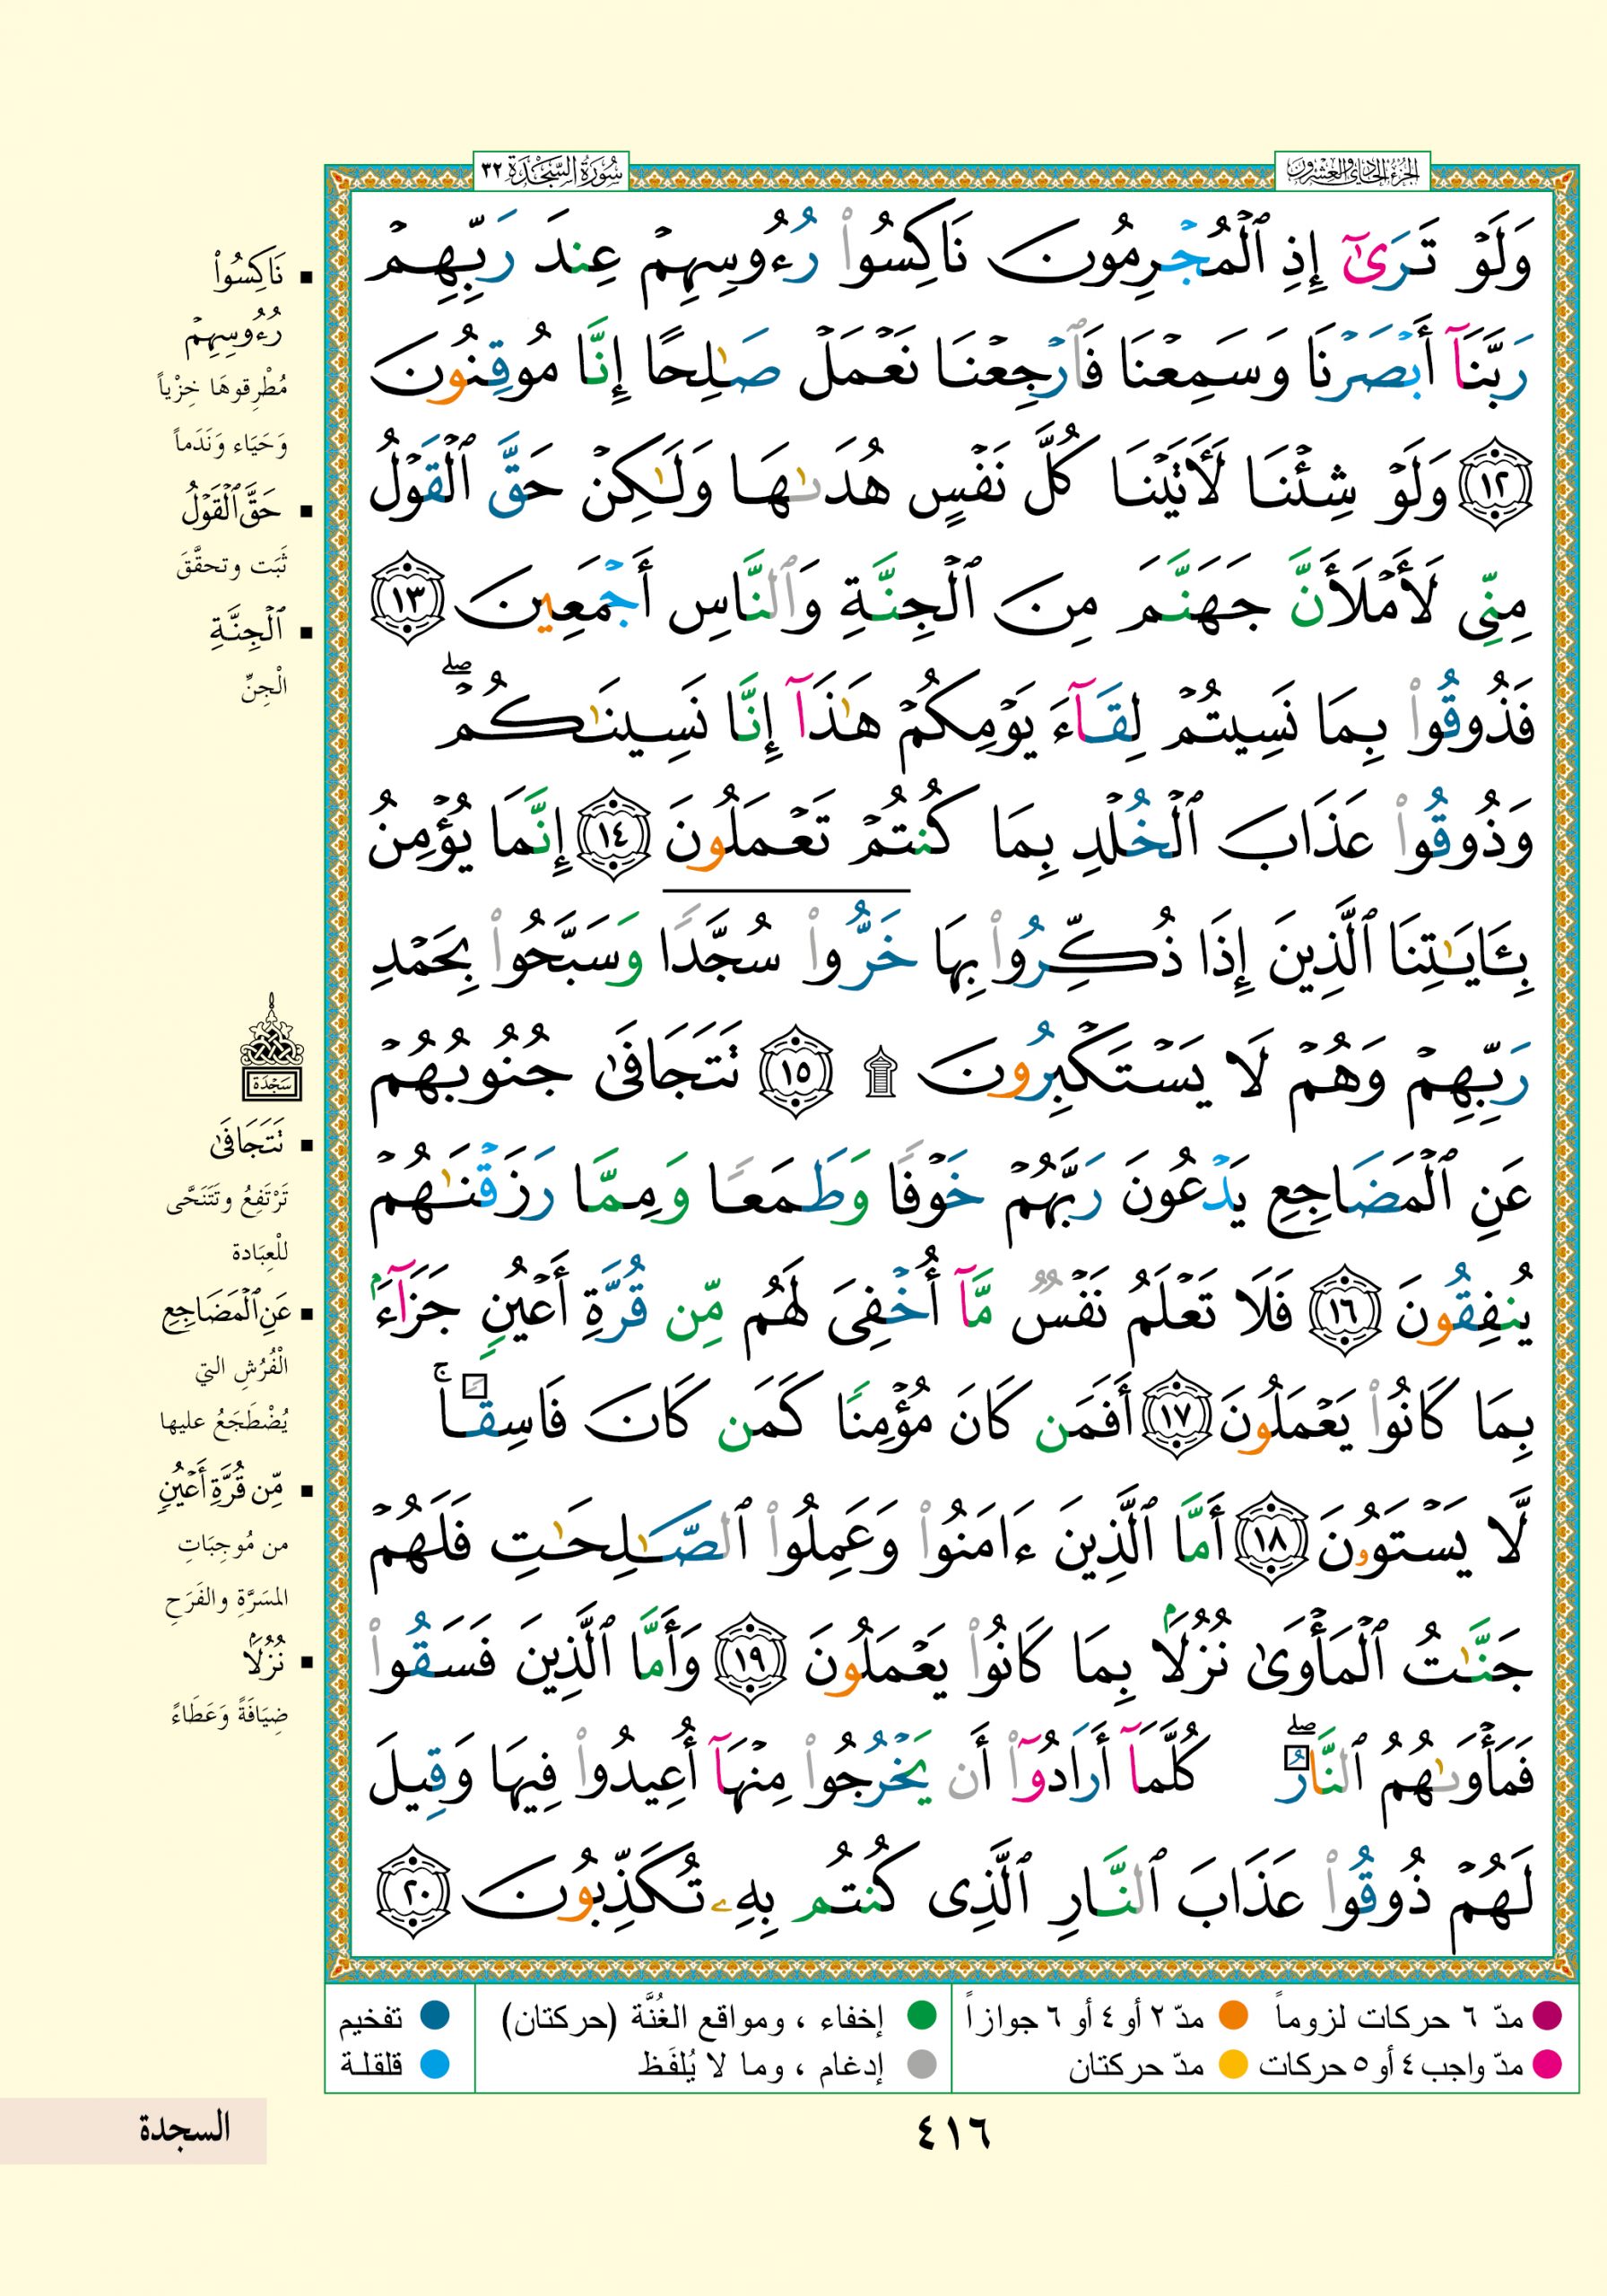 الجزء الحادي والعشرون
سُورَةُ السَّجْدَةِ ٣٢
وَلَوۡ تَرَىٰٓ إِذِ ٱلۡمُجۡرِمُونَ نَاكِسُواْ رُءُوسِهِمۡ عِندَ رَبِّهِمۡ
رَبَّنَآ أَبۡصَرۡنَا وَسَمِعۡنَا فَٱرۡجِعۡنَا نَعۡمَلۡ صَٰلِحًا إِنَّا مُوقِنُونَ
١٢ وَلَوۡ شِئۡنَا لَأٓتَيۡنَا كُلَّ نَفۡسٍ هُدَىٰهَا وَلَٰكِنۡ حَقَّ ٱلۡقَوۡلُ
مِنِّي لَأَمۡلَأَنَّ جَهَنَّمَ مِنَ ٱلۡجِنَّةِ وَٱلنَّاسِ أَجۡمَعِينَ ١٣
فَذُوقُواْ بِمَا نَسِيتُمۡ لِقَآءَ يَوۡمِكُمۡ هَٰذَآ إِنَّا نَسِينَٰكُمۡۖ
وَذُوقُواْ عَذَابَ ٱلۡخُلۡدِ بِمَا كُنتُمۡ تَعۡمَلُونَ ١٤ إِنَّمَا يُؤۡمِنُ
بِـَٔايَٰتِنَا ٱلَّذِينَ إِذَا ذُكِّرُواْ بِهَا خَرُّواْ سُجَّدٗا وَسَبَّحُواْ بِحَمۡدِ
رَبِّهِمۡ وَهُمۡ لَا يَسۡتَكۡبِرُونَ ۩ ١٥ تَتَجَافَىٰ جُنُوبُهُمۡ
عَنِ ٱلۡمَضَاجِعِ يَدۡعُونَ رَبَّهُمۡ خَوۡفٗا وَطَمَعٗا وَمِمَّا رَزَقۡنَٰهُمۡ
يُنفِقُونَ ١٦ فَلَا تَعۡلَمُ نَفۡسٞ مَّآ أُخۡفِيَ لَهُم مِّن قُرَّةِ أَعۡيُنٖ جَزَآءَۢ
بِمَا كَانُواْ يَعۡمَلُونَ ١٧ أَفَمَن كَانَ مُؤۡمِنٗا كَمَن كَانَ فَاسِقٗاۚ
لَّا يَسۡتَوُۥنَ ١٨ أَمَّا ٱلَّذِينَ ءَامَنُواْ وَعَمِلُواْ ٱلصَّٰلِحَٰتِ فَلَهُمۡ
جَنَّٰتُ ٱلۡمَأۡوَىٰ نُزُلَۢا بِمَا كَانُواْ يَعۡمَلُونَ ١٩ وَأَمَّا ٱلَّذِينَ فَسَقُواْ
فَمَأۡوَىٰهُمُ ٱلنَّارُۖ كُلَّمَآ أَرَادُوٓاْ أَن يَخۡرُجُواْ مِنۡهَآ أُعِيدُواْ فِيهَا وَقِيلَ
لَهُمۡ ذُوقُواْ عَذَابَ ٱلنَّارِ ٱلَّذِي كُنتُم بِهِۦ تُكَذِّبُونَ ٢٠
▪ نَاكِسُواْ
رُءُوسِهِمۡ
مُطْرِقوهَا خِزْياً
وَحَيَاء وَنَدَماً
▪ حَقَّ ٱلۡقَوۡلُ
ثَبَت وتحقَّقَ
▪ ٱلۡجِنَّةِ
الْجِنِّ
سَجْدَة
▪ تَتَجَافَىٰ
تَرْتَفِعُ وتَتَنَحَّى
للْعِبَادة
▪ عَنِ ٱلۡمَضَاجِعِ
الْفُرُشِ التي
يُضْطَجَعُ عليها
▪ مِّن قُرَّةِ أَعۡيُنٖ
من مُوجِبَاتِ
المسَرَّةِ والفَرَحِ
▪ نُزُلَۢا
ضِيَافَةً وَعَطَاءً
مدّ ٦ حركات لزوماً مدّ ٢ أو ٤ أو ٦ جوازاً إخفاء ، ومواقع الغُنَّة (حركتان) تفخيم
مدّ واجب ٤ أو ٥ حركات مدّ حركتان إدغام ، وما لا يُلفَظ قلقلة
٤١٦
السجدة